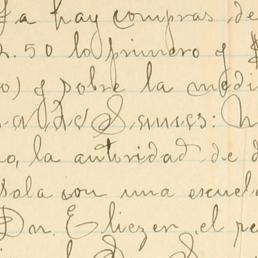 ya hay compras de
2.50 lo primero y $
o) y sobre la medi
o, la autoridad de d
sala con una escuel
Dn. Eliezer el pe